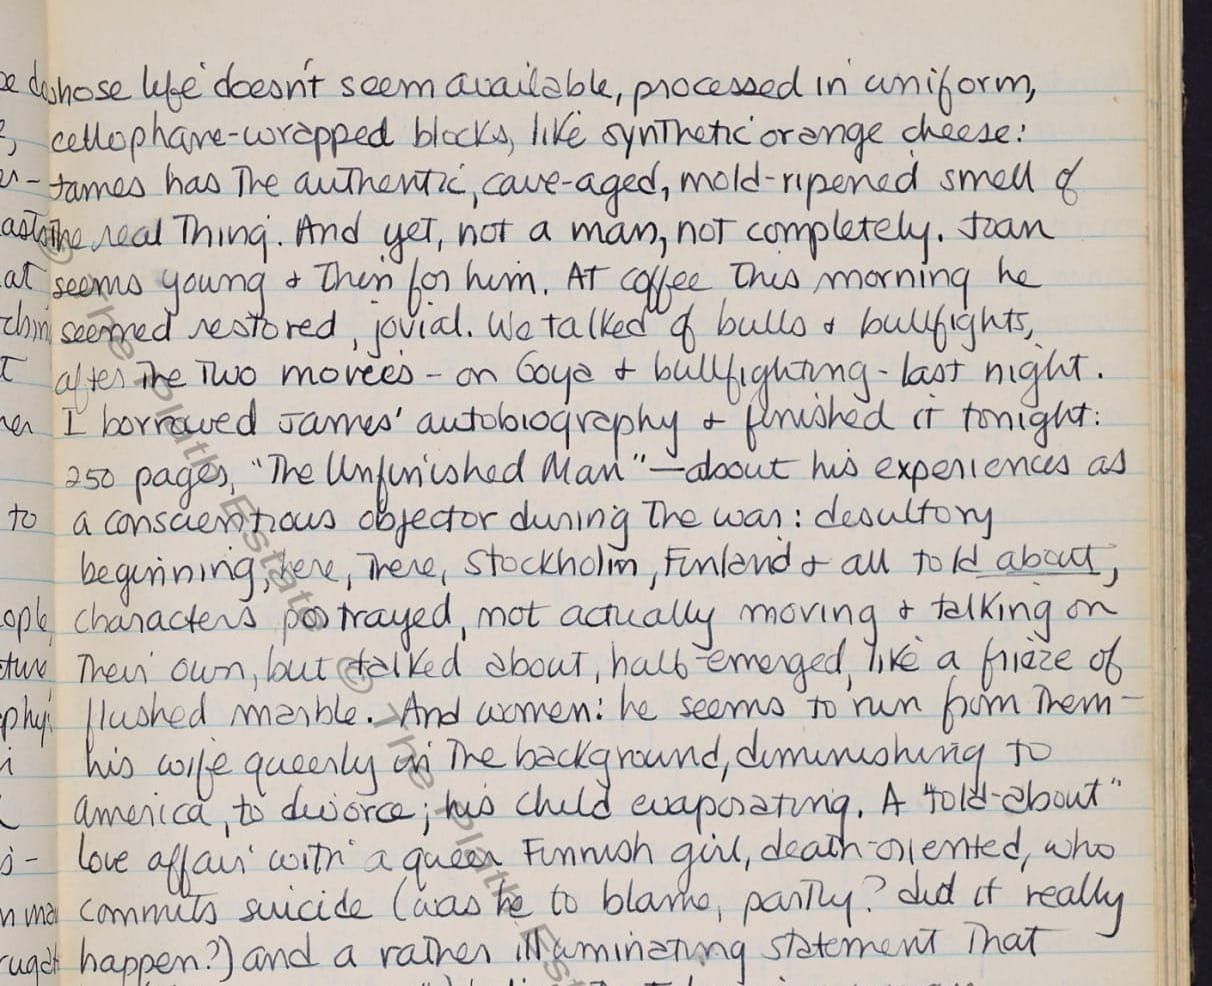 whose life doesn't seem available, processed in uniform,
cellophane-wrapped blocks, like synthetic orange cheese:
James has the authentic, cave-aged, mold-ripened smell of
the real Thing. And yet, not a man, not completely. Joan
seems young & thin for him. At coffee this morning he
seemed restored, jovial. We talked of bulls & bullfights,
after the two movies - on Goya & bullfighting - last night.
I borrowed James' autobiography & finished it tonight:
250 pages, "The Unfinished Man" — about his experiences as
a conscientious objector during the war: desultory
beginning, here, there, Stockholm, Finland & all told about,
characters portrayed, not actually moving & talking on
their own, but talked about, half-emerged, like a frieze of
flushed marble. And women: he seems to run from them -
his wife queenly in the background, diminishing to
America, to divorce; his child evaporating. A "told-about"
love affair with a queer Finnish girl, death-oriented, who
commits suicide (was he to blame, partly? did it really
happen?) and a rather illuminating statement that
The Plath Estate © The Plath Est